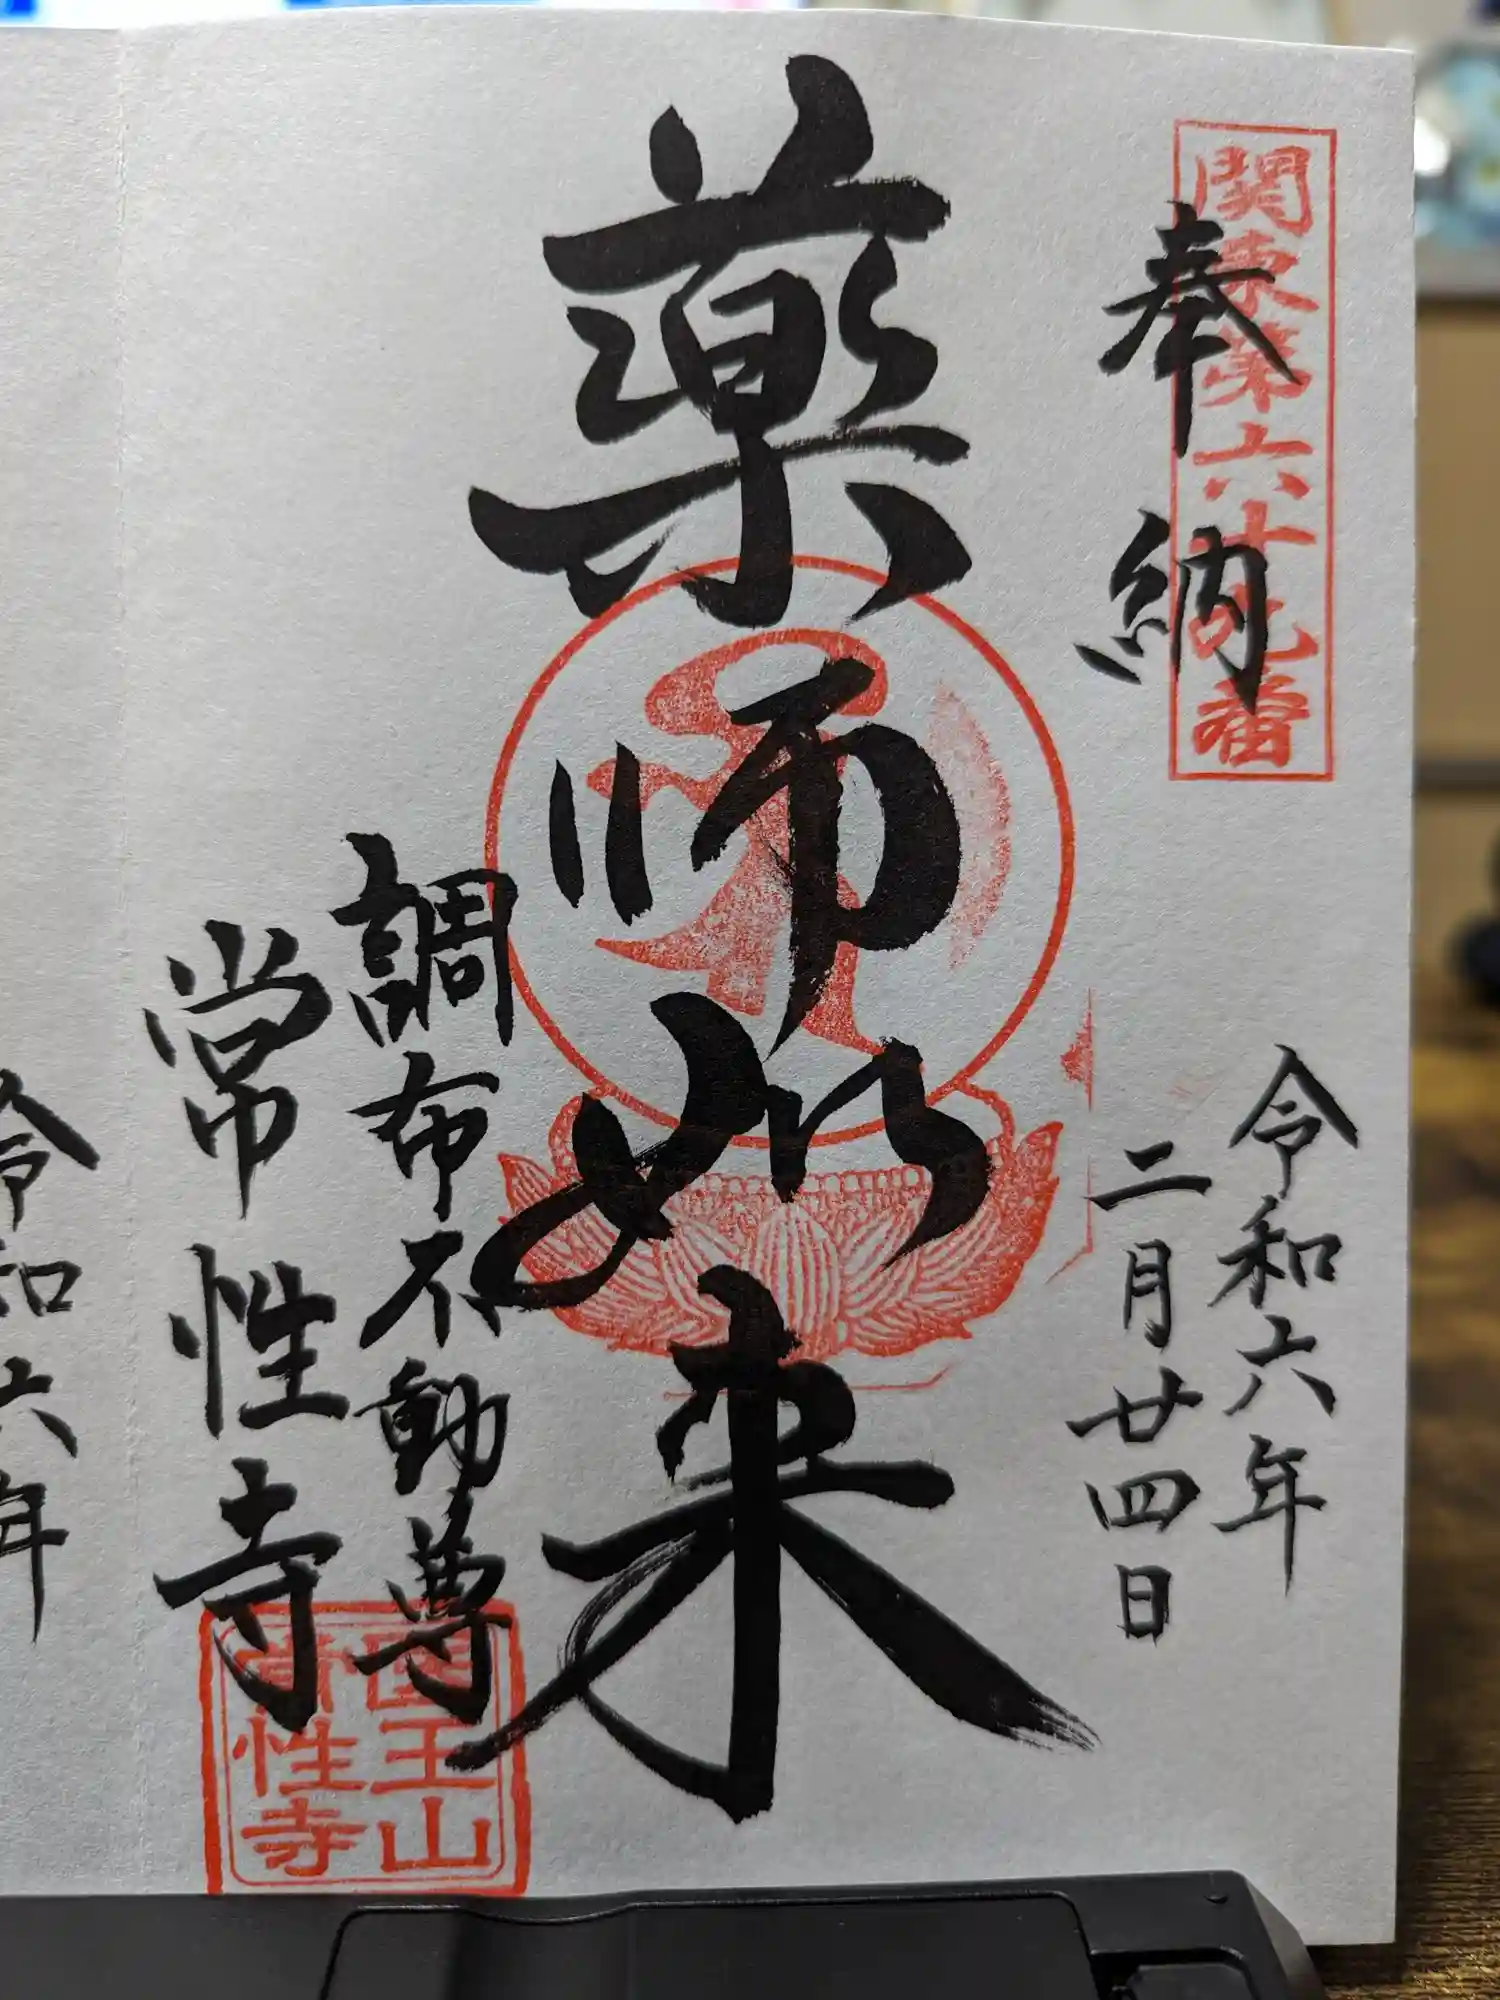 関東第六十九番
奉納
令和六年
二月廿四日
薬師如来
調布不動尊
常性寺
国王山
常性寺
令和六年